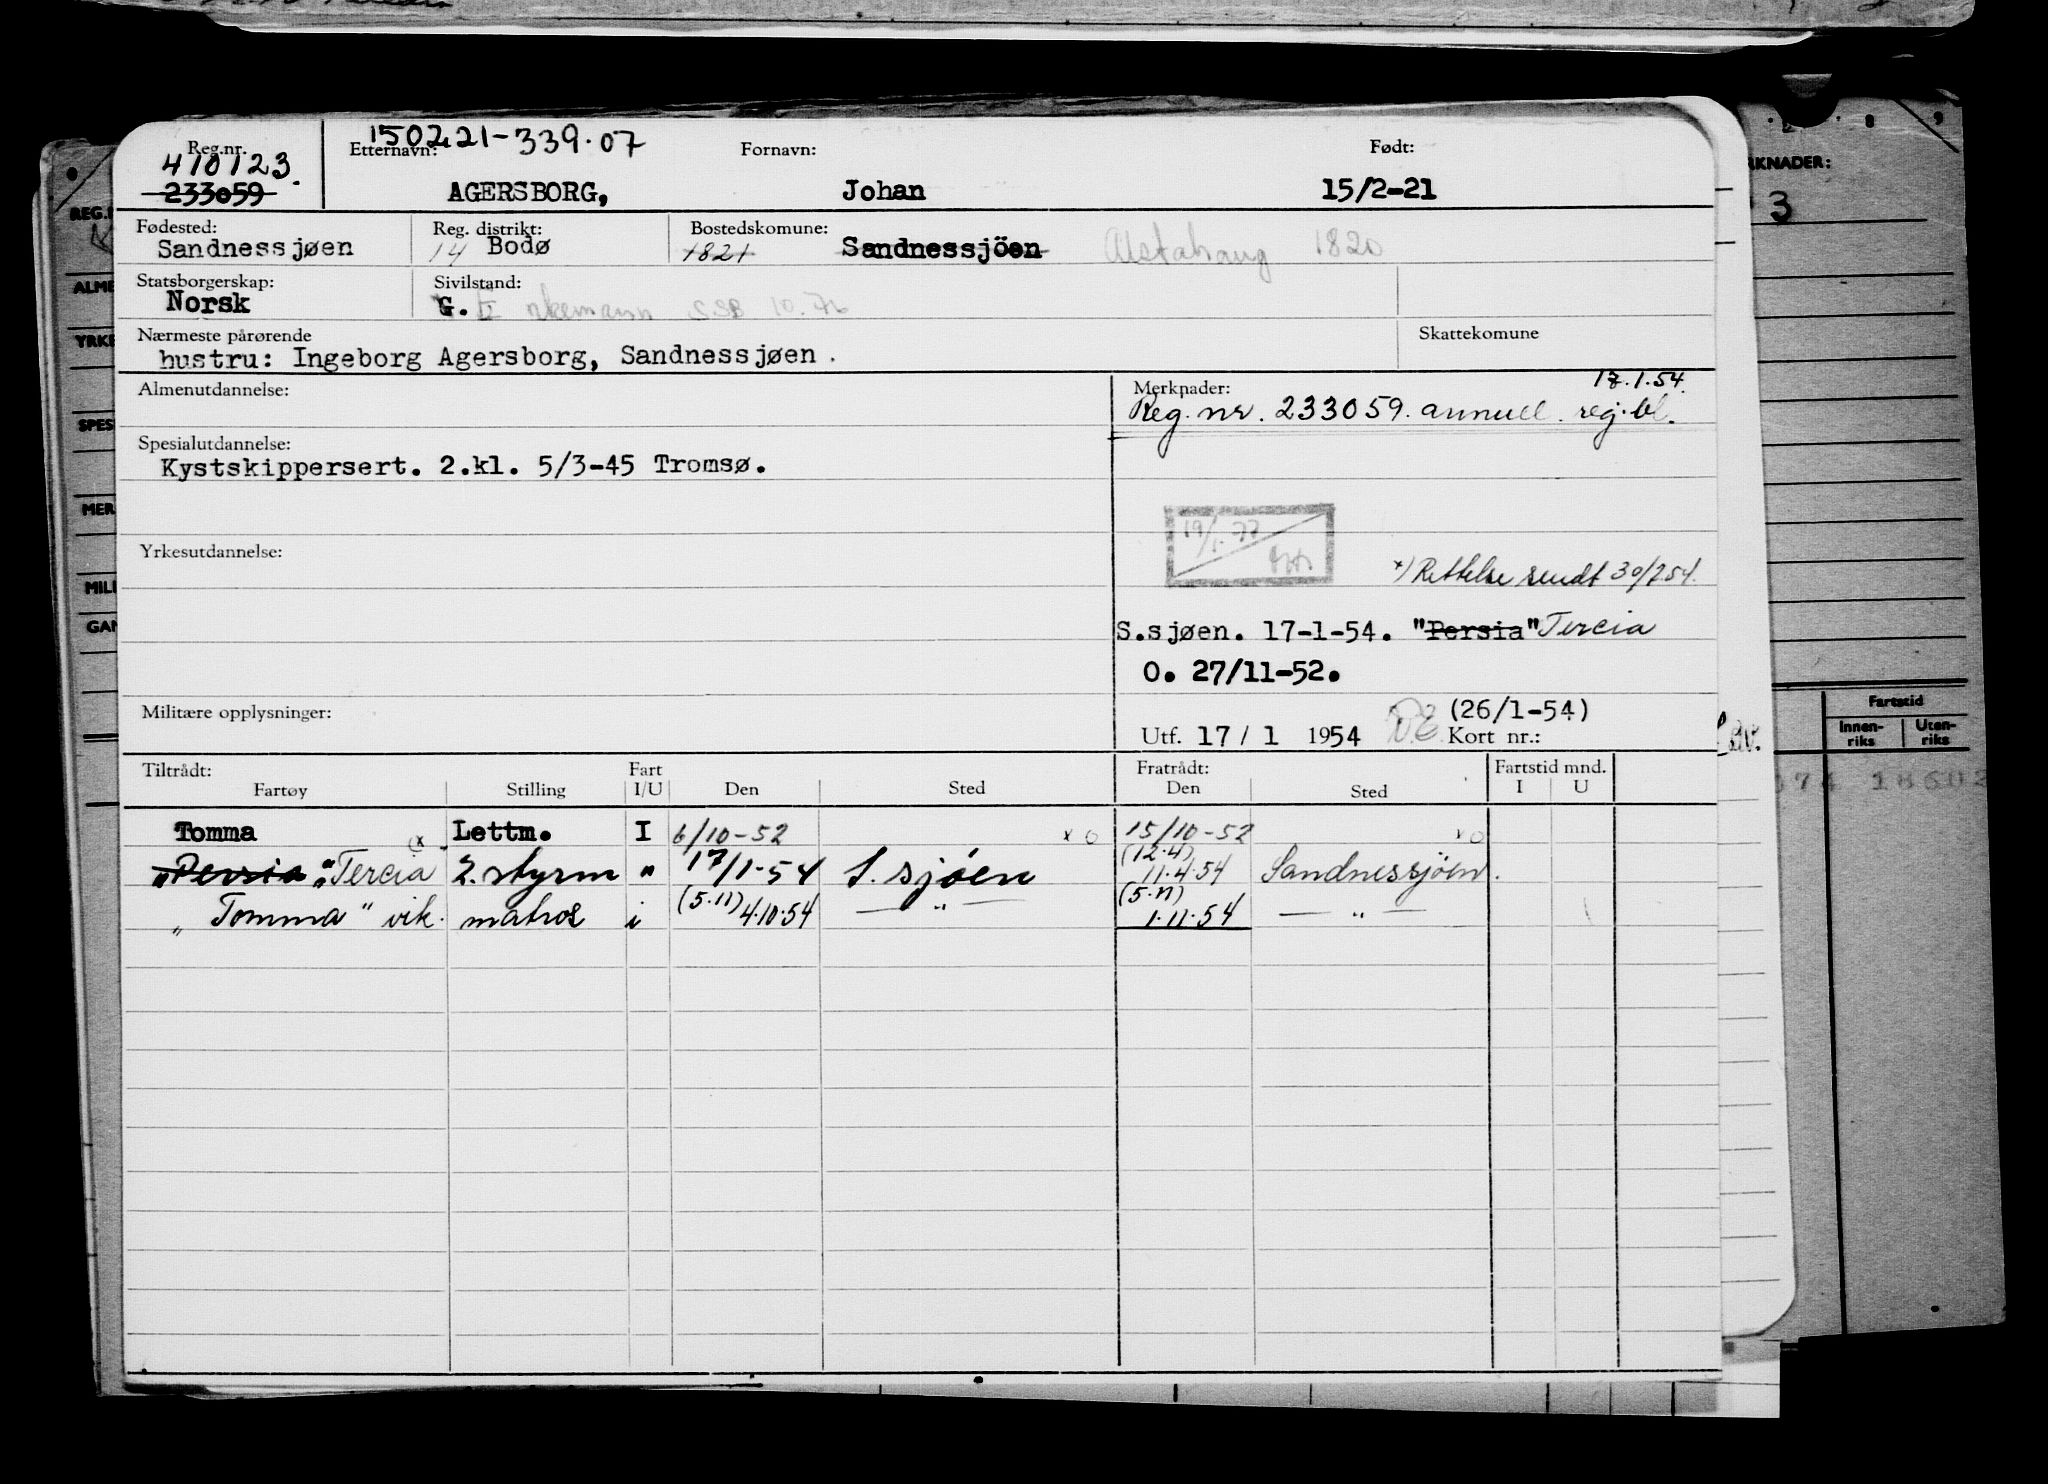 150221-339.07
Reg.nr. Etternavn: Fornavn: Født:
410123.
233059 AGERSBORG, Johan 15/2-21
Fødested: Reg. distrikt: Bostedskomune:
Sandnessjøen 14 Bodø 1821 Sandnessjöen Alstahaug 1820
Statsborgerskap: Sivilstand:
Norsk G. E nkemann SSB 10.76
Nærmeste pårørende Skattekomune
hustru: Ingeborg Agersborg, Sandnessjøen.
Almenutdannelse: Merknader: 18.1.54.
Reg. nr. 233059. annull. reg.bl.
Spesialutdannelse:
Kystskippersert. 2.kl. 5/3-45 Tromsø.
19/1-77
Yrkesutdannelse:
*) Rettelse sendt 30/7.54.
S.sjøen. 17-1-54. "Persia" Tercia
O. 27/11-52.
Militære opplysninger: (26/1-54)
Utf. 17 / 1 1954 Kort nr.:
Tiltrådt: Fart Fratrådt: Fartstid mnd.
Fartøy Stilling I/U Den Sted Den Sted I U
Tomma Lettm. I 6/10-52 x o 15/10-52 x o
(12.4)
"Persia" Tercia 2. styrm " 17/1-54 S. sjøen 11.4.54 Sandnessjøen.
(5.11) (5.11)
"Tomma" vik. matros i 4.10.54 — " — 1.11.54 — " —
REG.
ALME
YRKE
SPES
MER
MILI
GAN
RKNADER:
3
Fartstid
Innen-riks Uten-riks